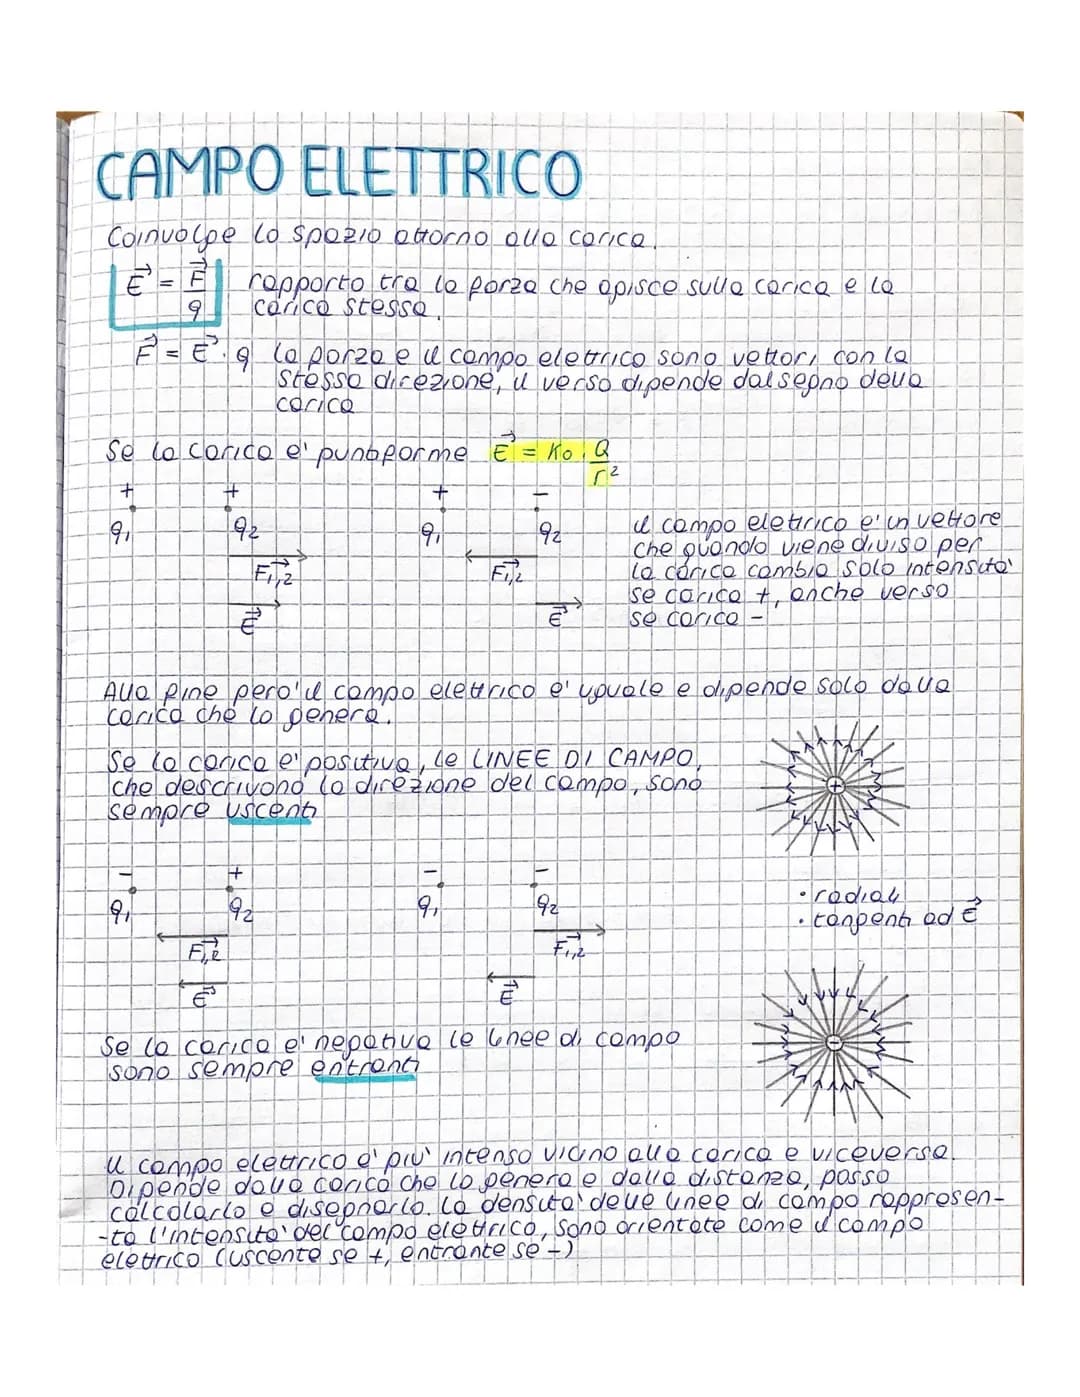 CAMPO ELETTRICO
Coinvolge lo spazio attorno alla carica.
E⃗ = F⃗/q rapporto tra la forza che agisce sulla carica e la
carica stessa.
F⃗ = E⃗ · q la forza e il campo elettrico sono vettori con la
stessa direzione, il verso dipende dal segno della
carica
Se la carica e' puntiforme E⃗ = K₀ · Q/r²
+ + + -
q₁ q₂ q₁ q₂
F⃗₁,₂ F⃗₁,₂
E⃗ E⃗
il campo elettrico e' un vettore
che quando viene diviso per
la carica cambia solo intensita'
se carica +, anche verso
se carica -
Alla fine pero' il campo elettrico e' uguale e dipende solo dalla
carica che lo genera.
Se la carica e' positiva, le LINEE DI CAMPO,
che descrivono la direzione del campo, sono
sempre uscenti
+
- + - -
q₁ q₂ q₁ q₂
F⃗₁,₂ F⃗₁,₂
E⃗ E⃗
• radiali
• tangenti ad E⃗
Se la carica e' negativa le linee di campo
sono sempre entranti
-
Il campo elettrico e' piu' intenso vicino alla carica e viceversa.
Dipende dalla carica che lo genera e dalla distanza, posso
calcolarlo e disegnarlo. La densita' delle linee di campo rappresen-
-ta l'intensita' del campo elettrico, sono orientate come il campo
elettrico (uscente se +, entrante se -)